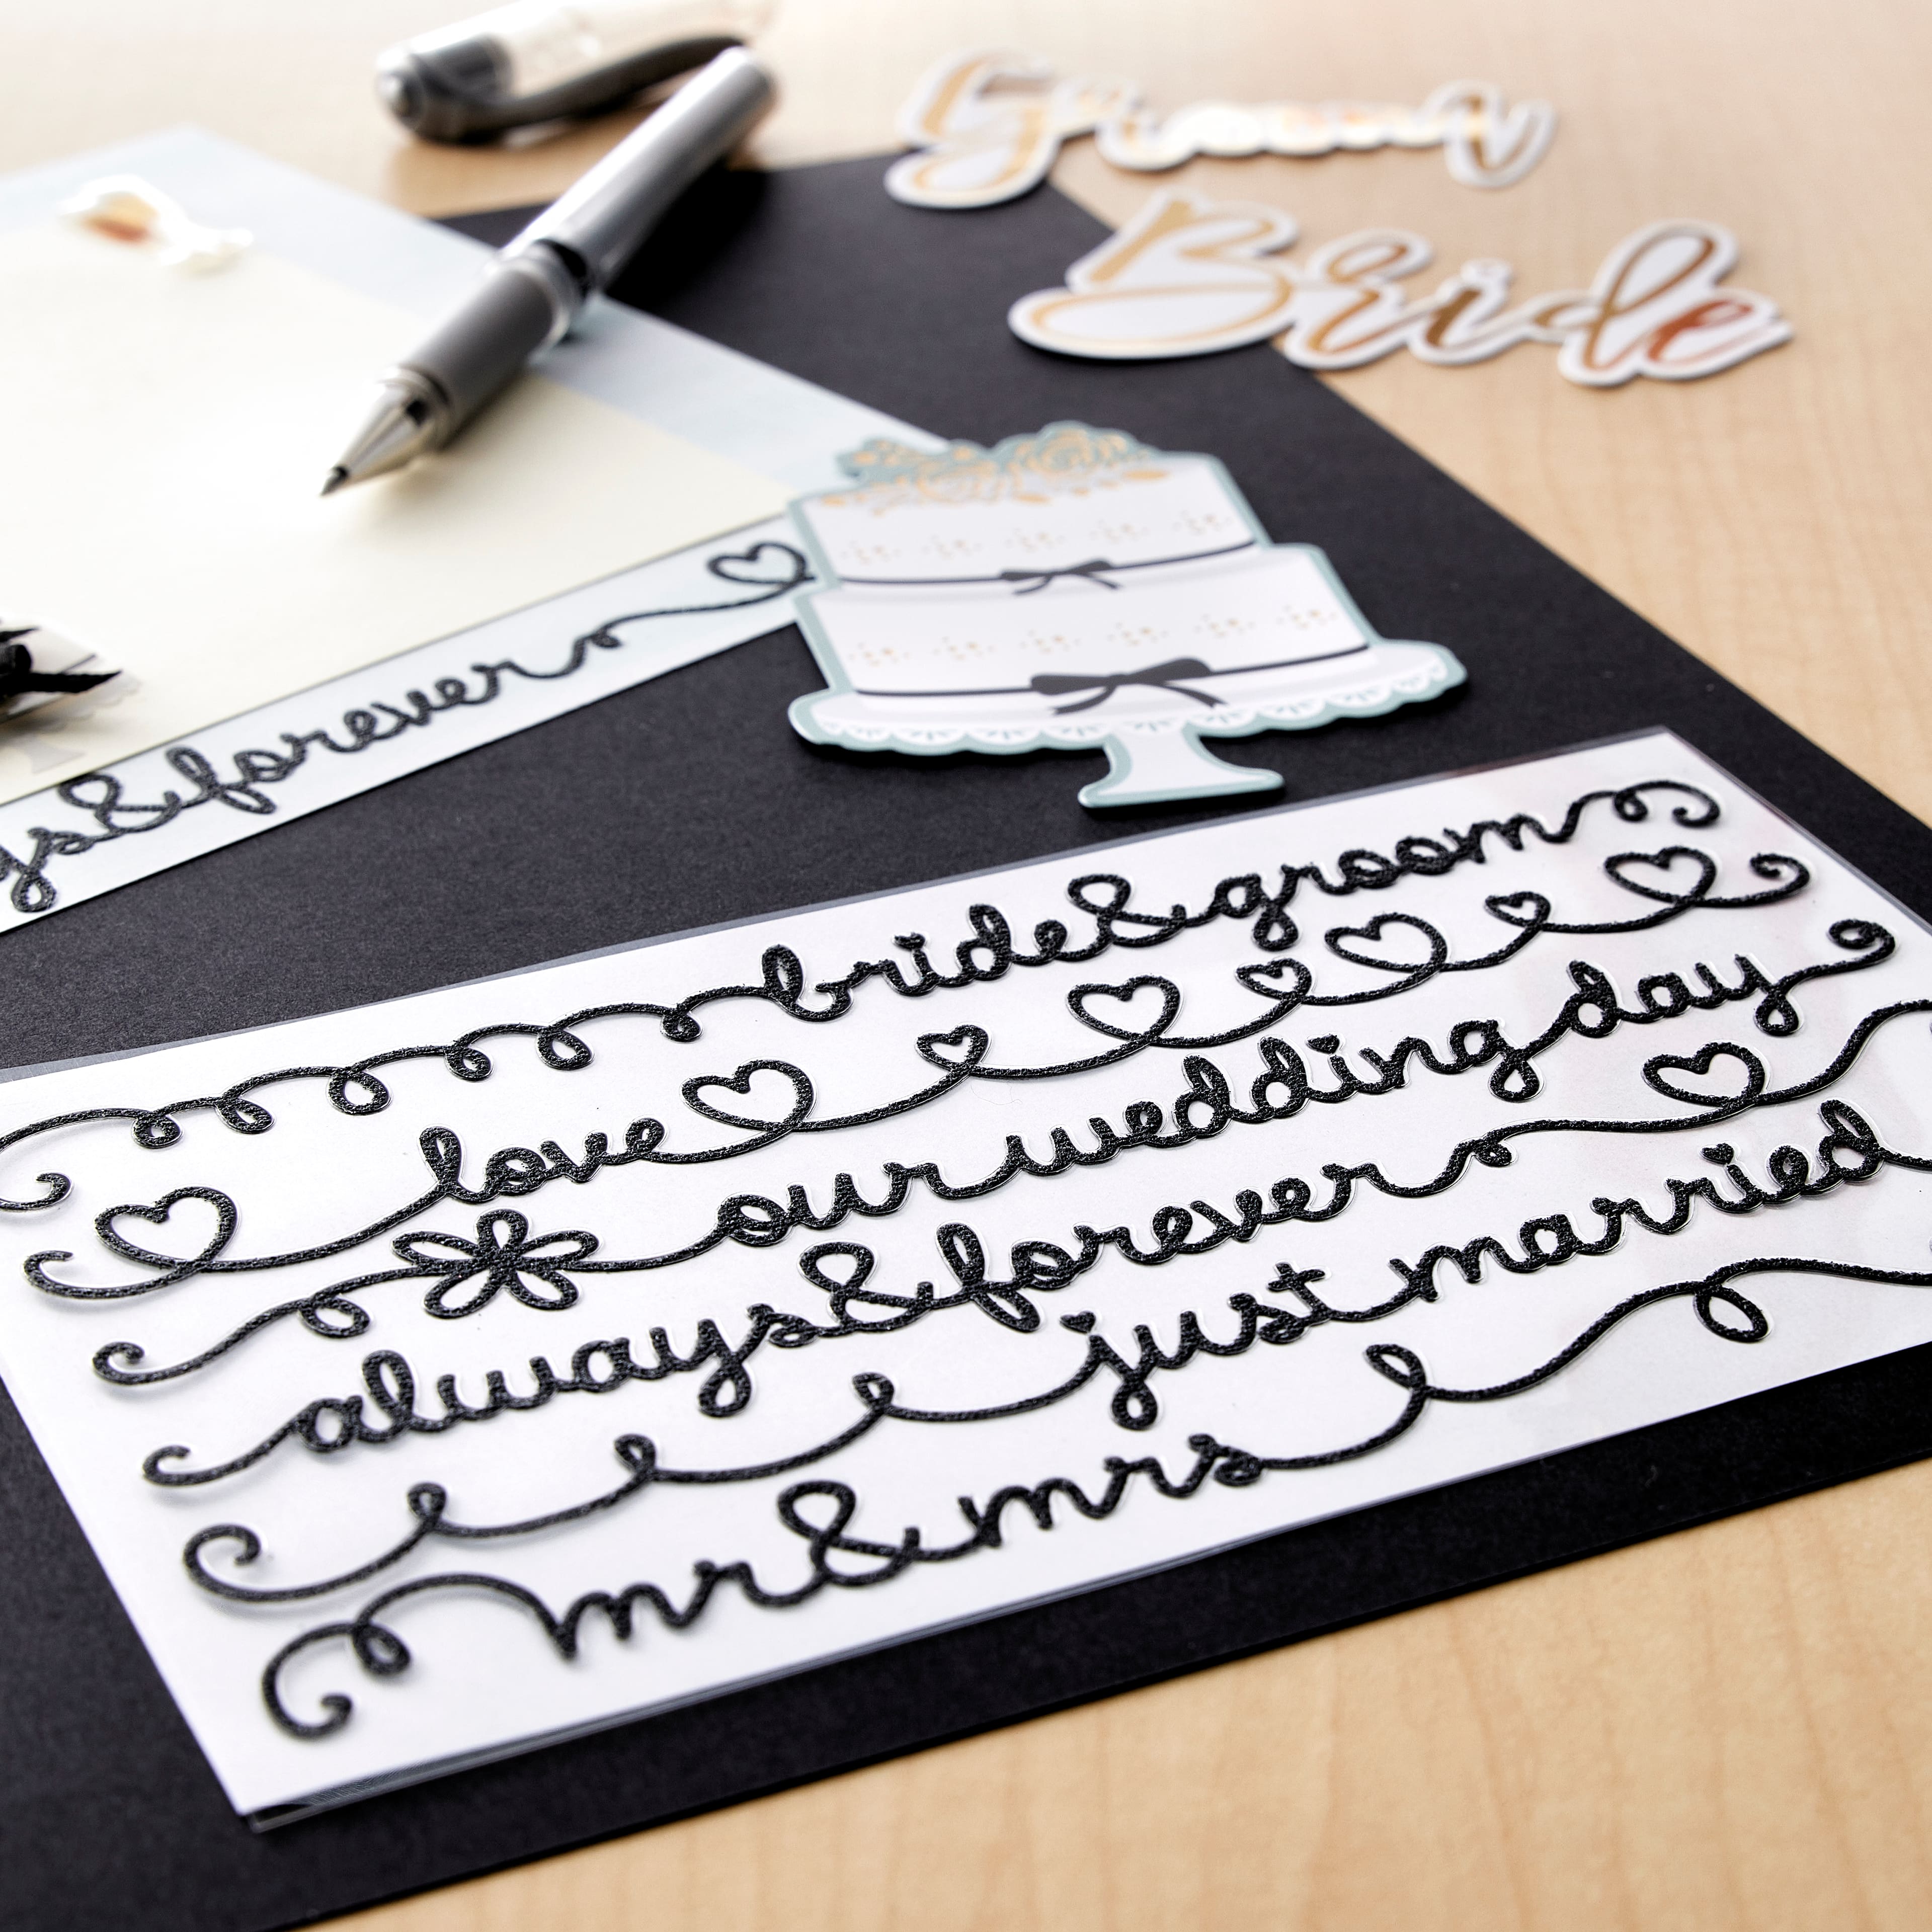 Groom
Bride
ys&forever
bride&groom
love
our wedding day
always&forever
just married
mr&mrs